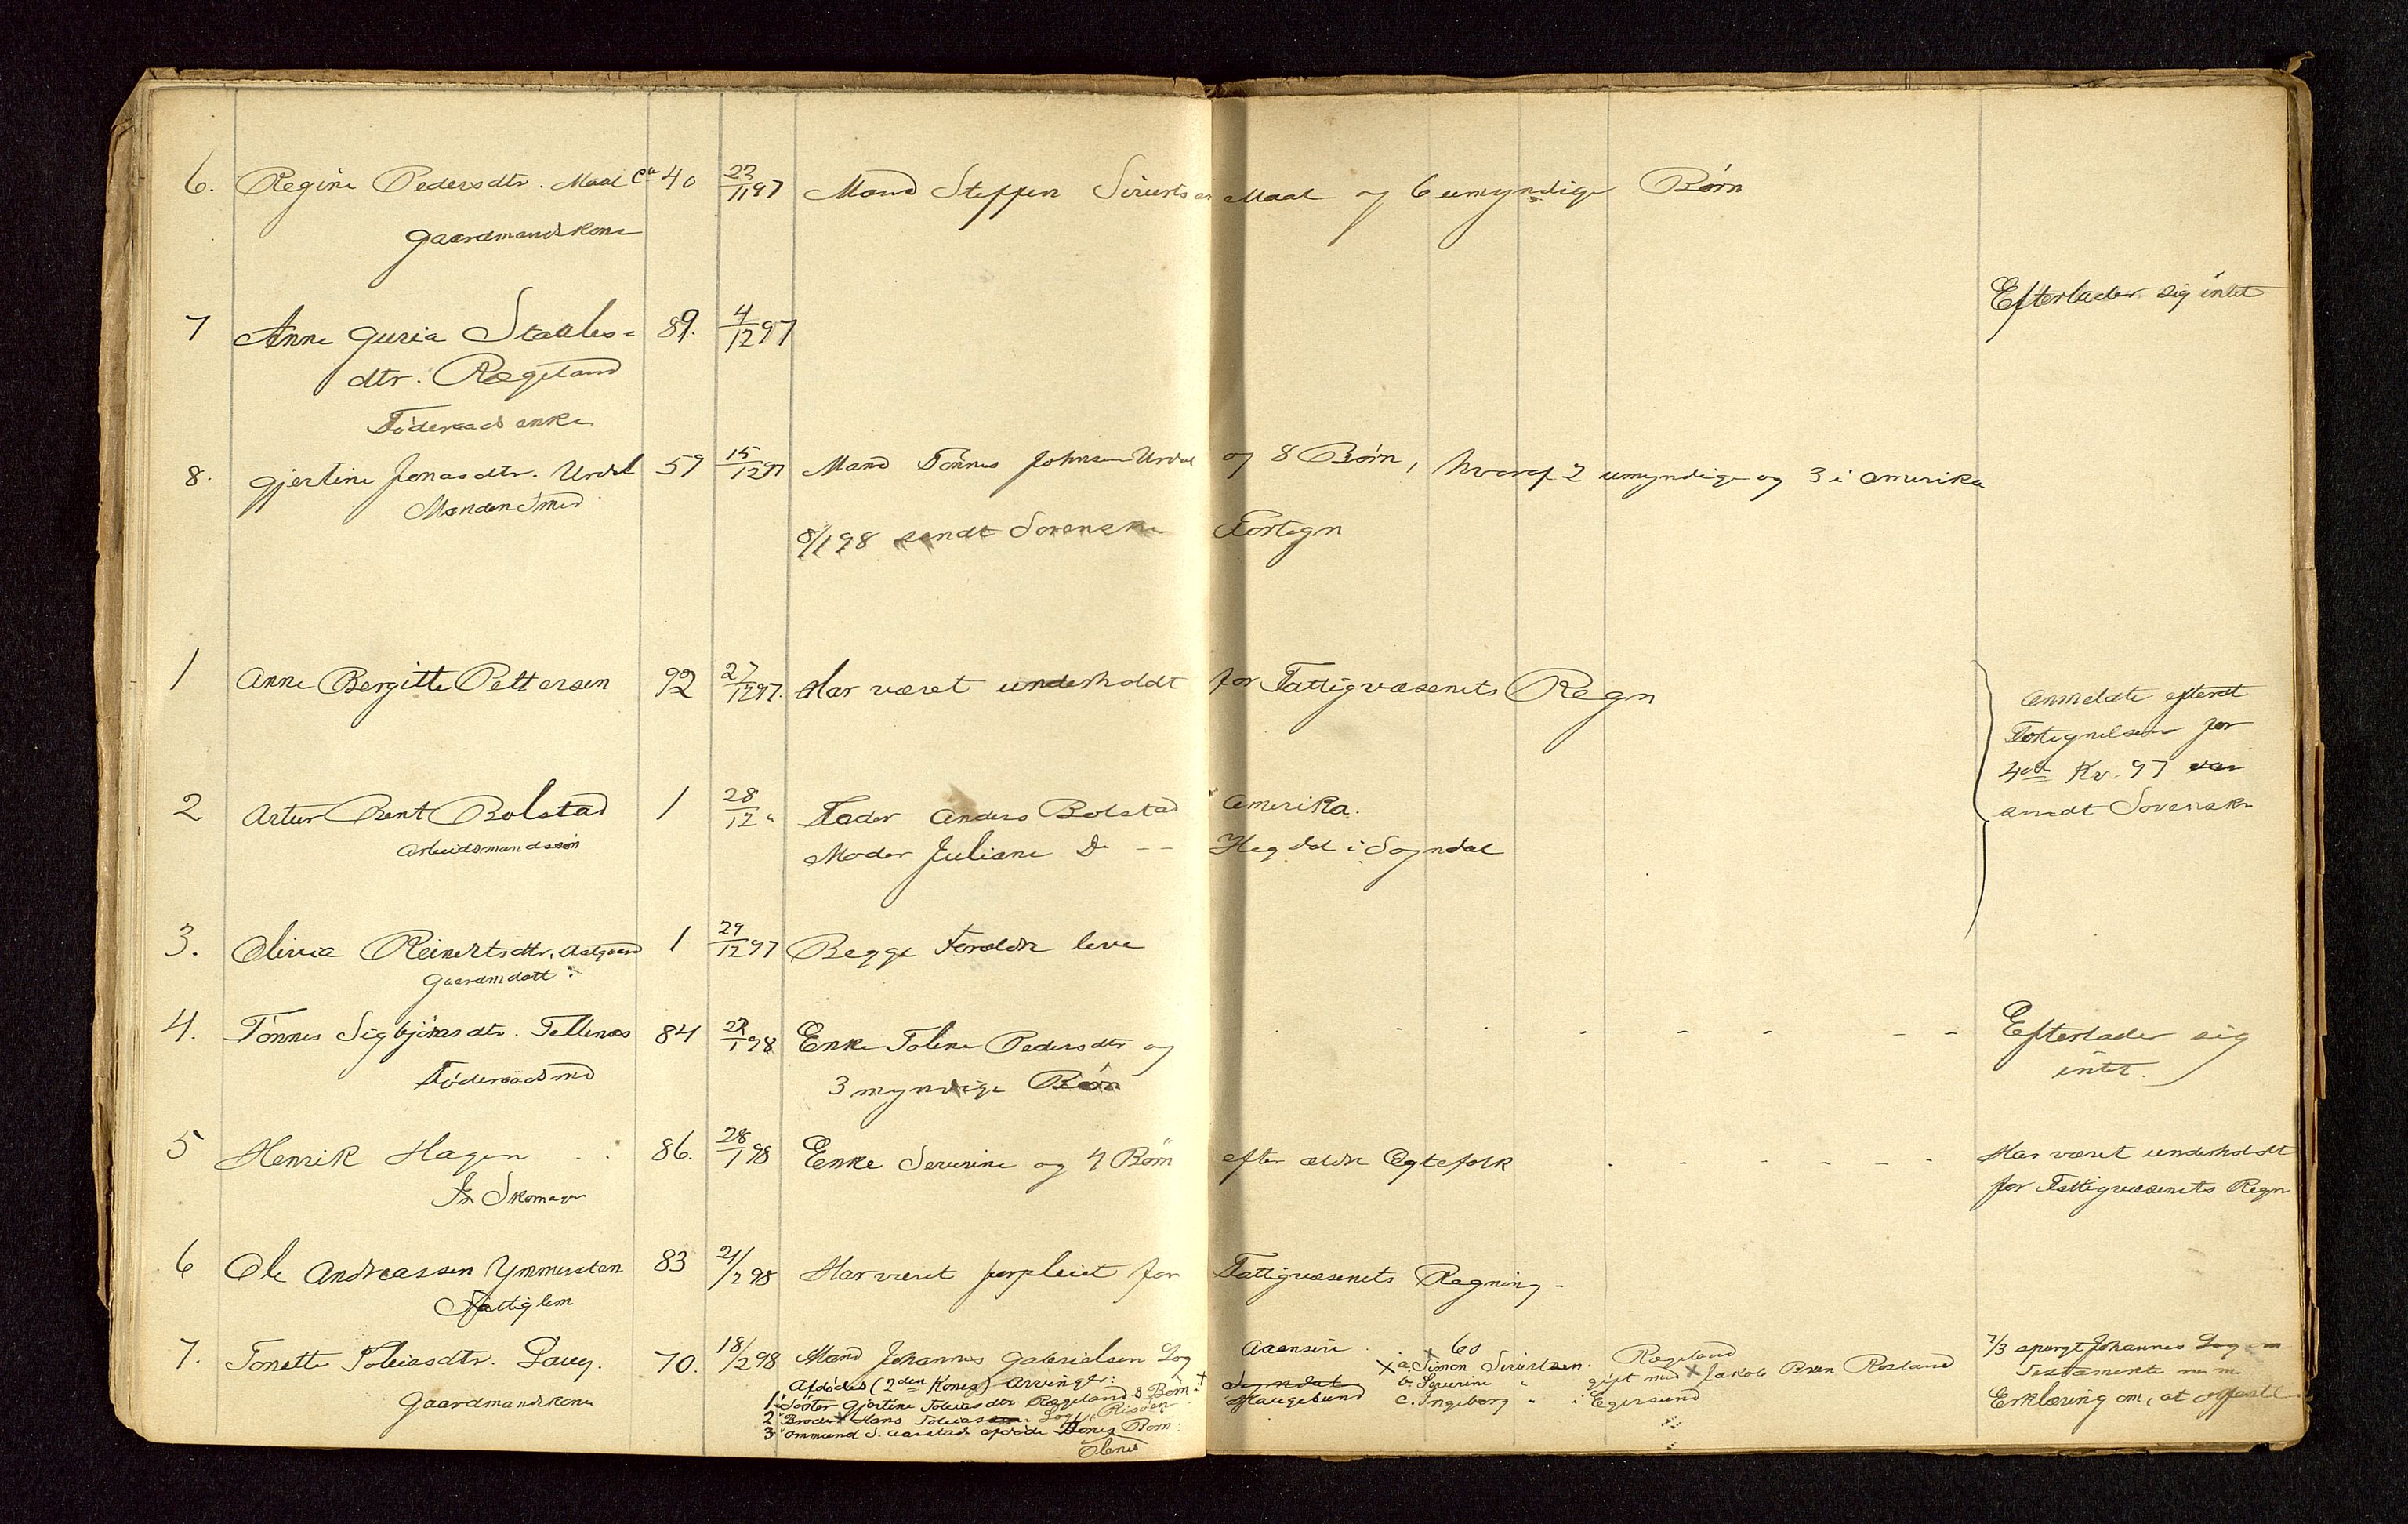 6. Regine Pedersdtr. Maal ca 40 22/11 97 Mand Steffen Sivertsen Maal og 6 umyndige Børn
Gaardmandskone
Efterlader sig intet
7 Anne Guria Staales-
89. 4/12 97
dtr. Rægeland
Föderaadsenke
8. Gjertine Jonasdtr. Urdal 59 15/12 97 Mand Tönnes Johnsen Urdal og 8 Børn, hvoraf 2 umyndige og 3 i Amerika
Manden Smed
8/1 98 sendt Sorenskr Fortegn
1 Anne Bergitte Pettersen 92 27/12 97. Har været underholdt for Fattigvæsenets Regn
Anmeldte efterat
Fortegnelsen for
4de Kv. 97 var
sendt Sorenskr
2 Artur Bent Bolstad 1 28/12 " Fader Anders Bolstad Amerika.
Arbeidsmandssön
Moder Juliane D - - Hegdal i Sogndal
3. Olivia Reinertsdtr. Aalgaard 1 29/12 97 Begge Forældre leve
Gaardmdatt:
4. Tönnes Sigbjörnsdtr. Tellenæs 84 1 98 Enke Tolene Pedersdtr og - - - - - - - Efterlader sig
Föderaadsmd
3 myndige Børn
intet.
5 Henrik Hagen 86. 28/1 98 Enke Severine og 4 Børn efter ældre Egtefolk - - - - - - Har været underholdt
Fh Skomager
for Fattigvæsenets Regn
6 Ole Andreassen Ymmersten 83 21/2 98 Har været forpleiet for Fattigvæsenets Regning -
Fattiglem
7. Tonette Tobiasdtr. Laug. 70. 18/2 98 Mand Johannes Gabrielsen Log Aaensire
Gaardmandskone
Afdødes (2den Kones) Arvinger:
1 Søster Gjertine Tobiasdtr Rægeland 8 Børn: Sogndal
2 Broder Hans Tobiassen Log, Risøen Haugesund
3 Ommund S. afdöde Børn:
Olenes
60
a. Simon Sivertsen Rægeland
b. Severine " gift med Jakob Bren Rosland
c. Ingeborg " i Egersund
7/3 spurgt Johannes Log om
Testamente m m
Erklæring om, at